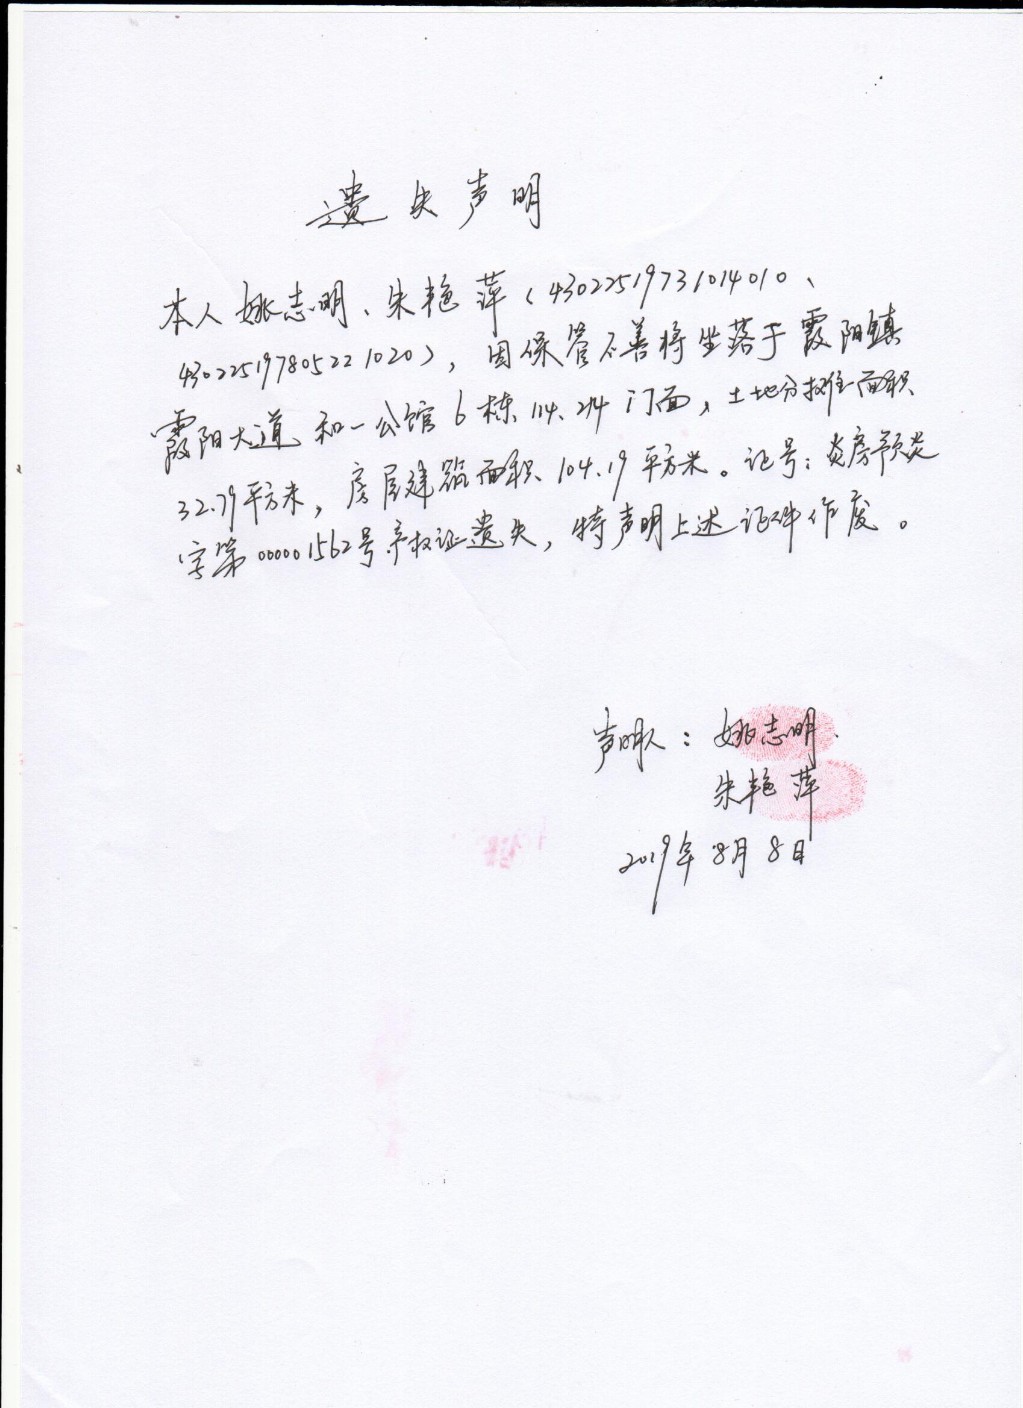 遗失声明
本人姚志明、朱艳萍(43022519731014010、
430225197805221020),因保管不善将坐落于霞阳镇
霞阳大道和一公馆6栋114.214门面,土地分摊面积
32.79平方米,房屋建筑面积104.19平方米。证号:炎房预炎
字第000001562号产权证遗失,特声明上述证件作废。
声明人:姚志明.
朱艳萍
2019年8月8日